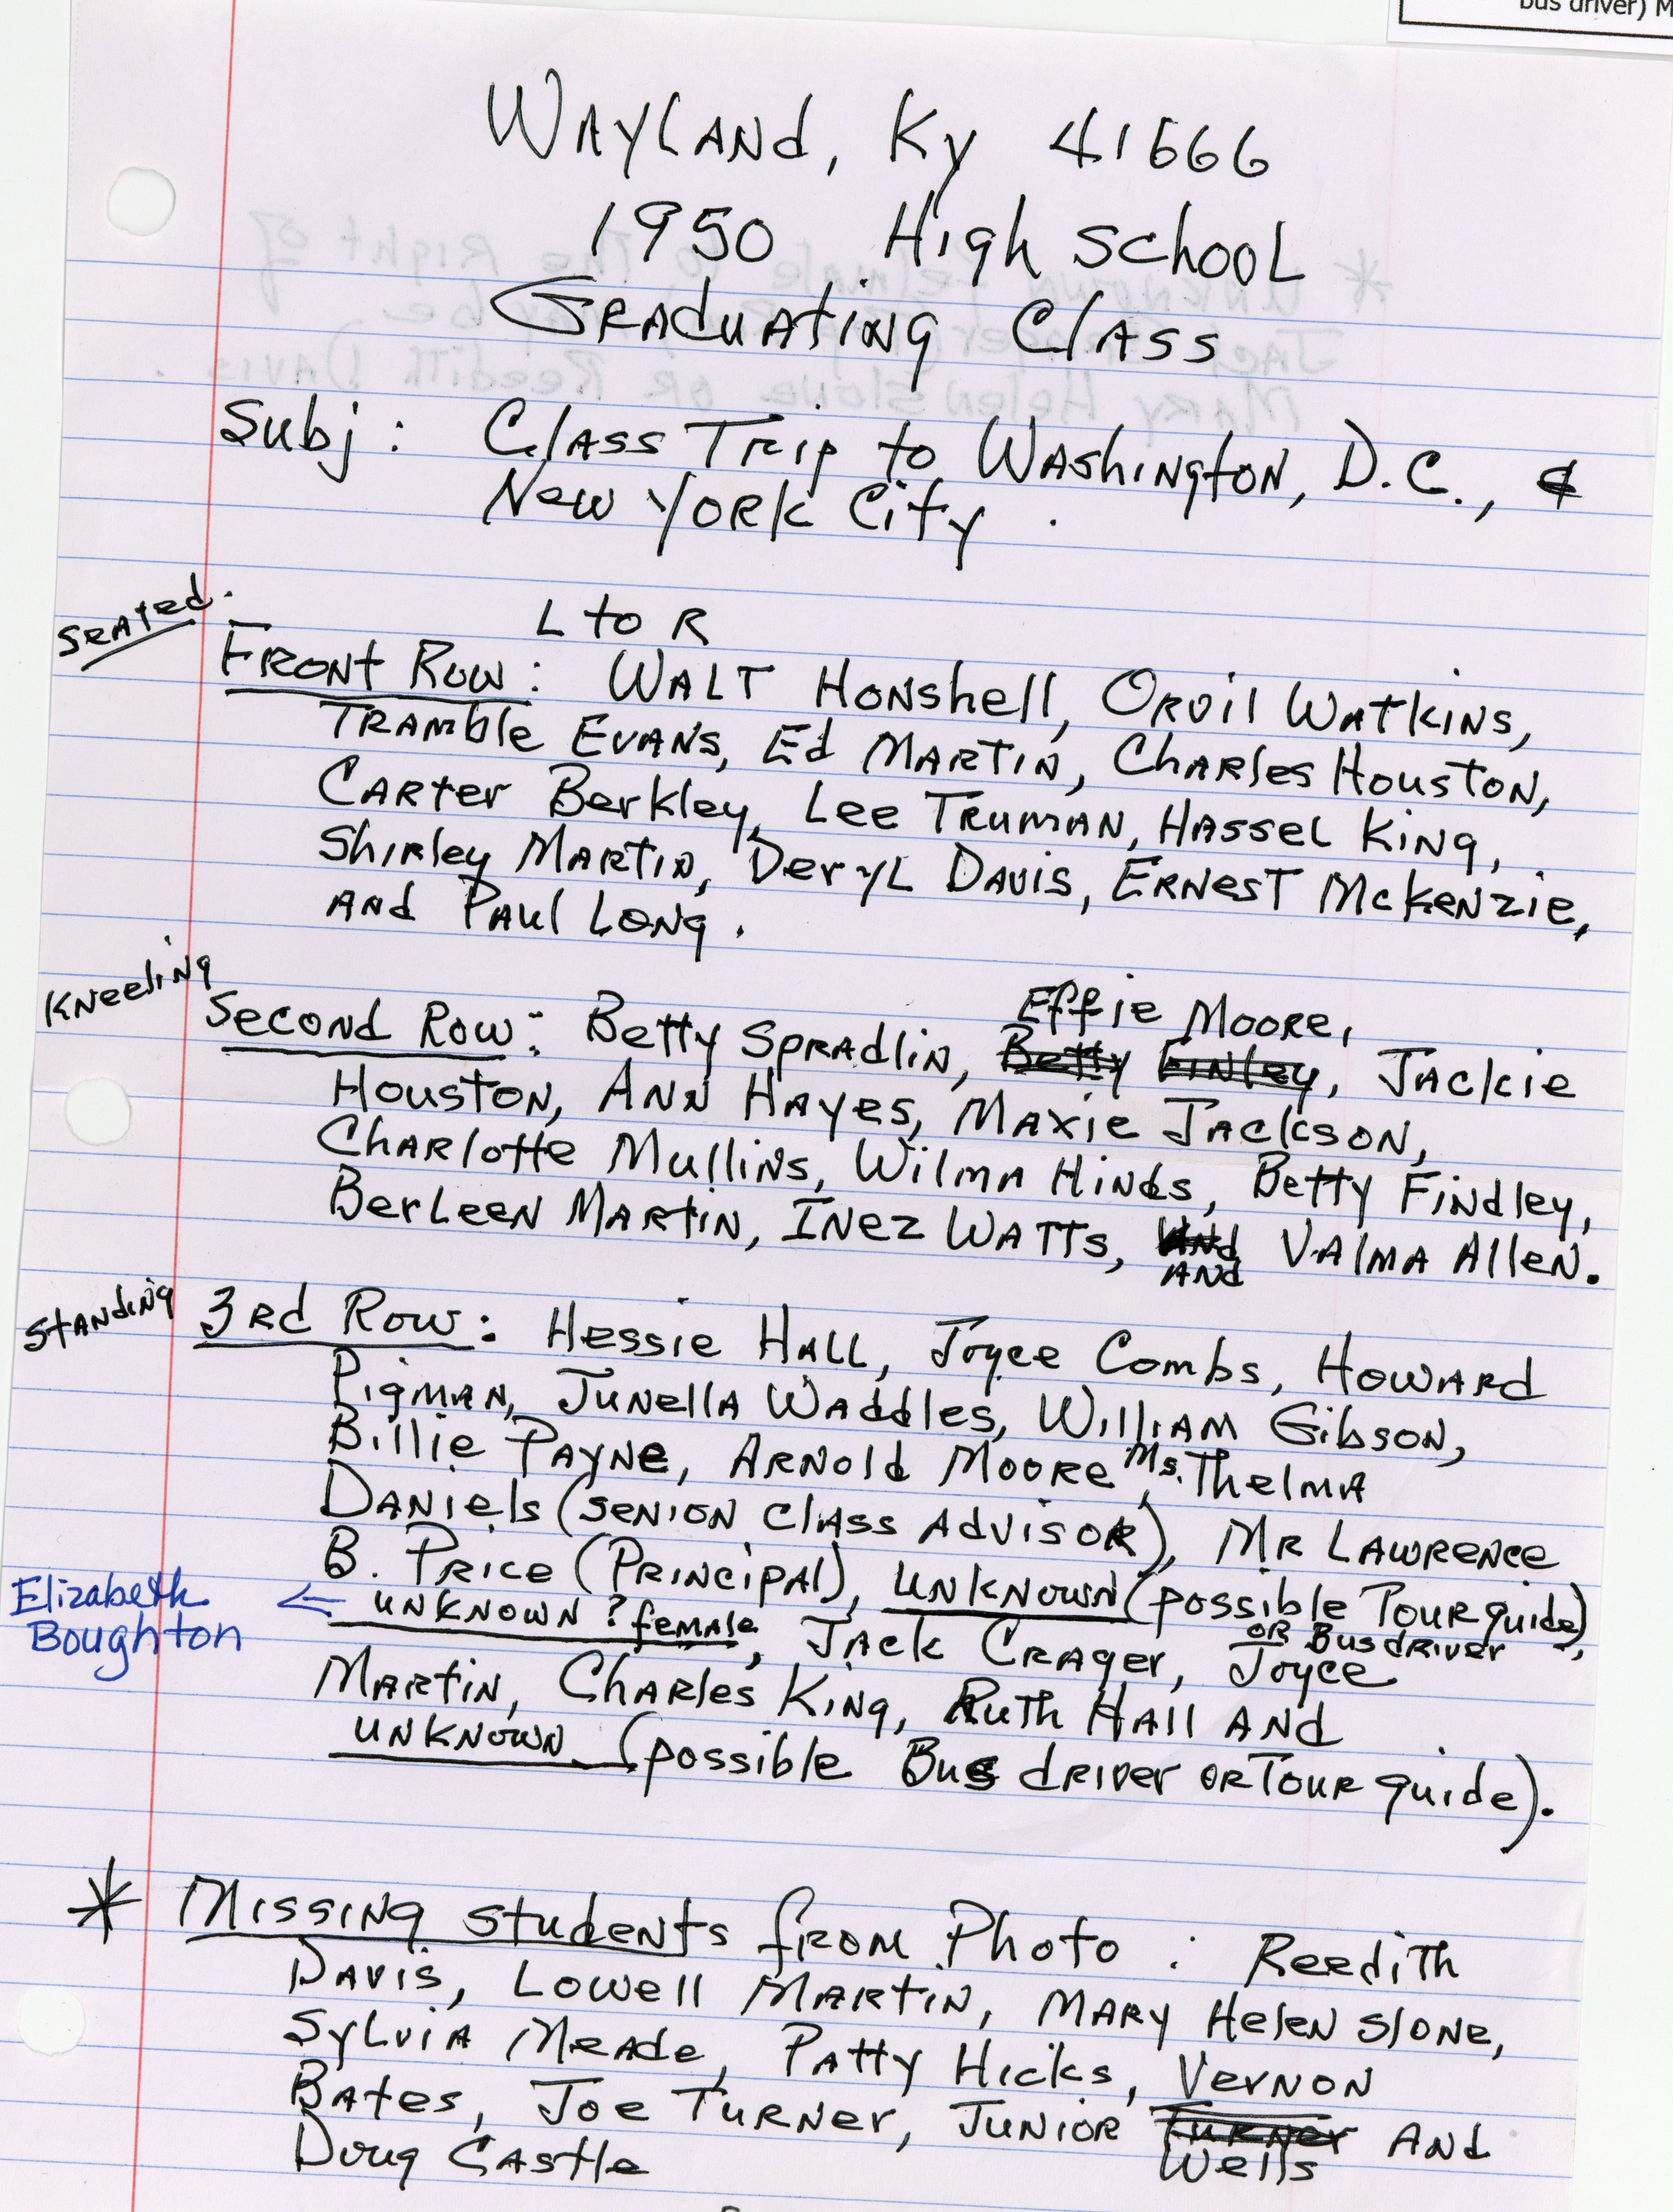 bus driver) M
Wayland, Ky 41666
1950 High School
Graduating Class
Subj: Class Trip to Washington, D.C., &
New York City.
Seated.
L to R
Front Row: Walt Honshell, Orvil Watkins,
Tramble Evans, Ed Martin, Charles Houston,
Carter Berkley, Lee Truman, Hassel King,
Shirley Martin, Deryl Davis, Ernest McKenzie,
and Paul Long.
Kneeling
Effie Moore,
Second Row: Betty Spradlin, Betty Finley, Jackie
Houston, Ann Hayes, Maxie Jackson,
Charlotte Mullins, Wilma Hinds, Betty Findley,
Berleen Martin, Inez Watts, and Valma Allen.
and
Standing
3rd Row: Hessie Hall, Joyce Combs, Howard
Pigman, Junella Waddles, William Gibson,
Billie Payne, Arnold Moore, Ms. Thelma
Daniels (Senion Class Advisor), Mr Lawrence
B. Price (Principal), unknown (possible Tour guide),
or Bus driver
Elizabeth
Boughton
← unknown ? female, Jack Crager, Joyce
Martin, Charles King, Ruth Hall and
unknown (possible Bus driver or Tour guide).
* Missing students from Photo: Reedith
Davis, Lowell Martin, Mary Helen Slone,
Sylvia Meade, Patty Hicks, Vernon
Bates, Joe Turner, Junior Turner and
Wells
Doug Castle